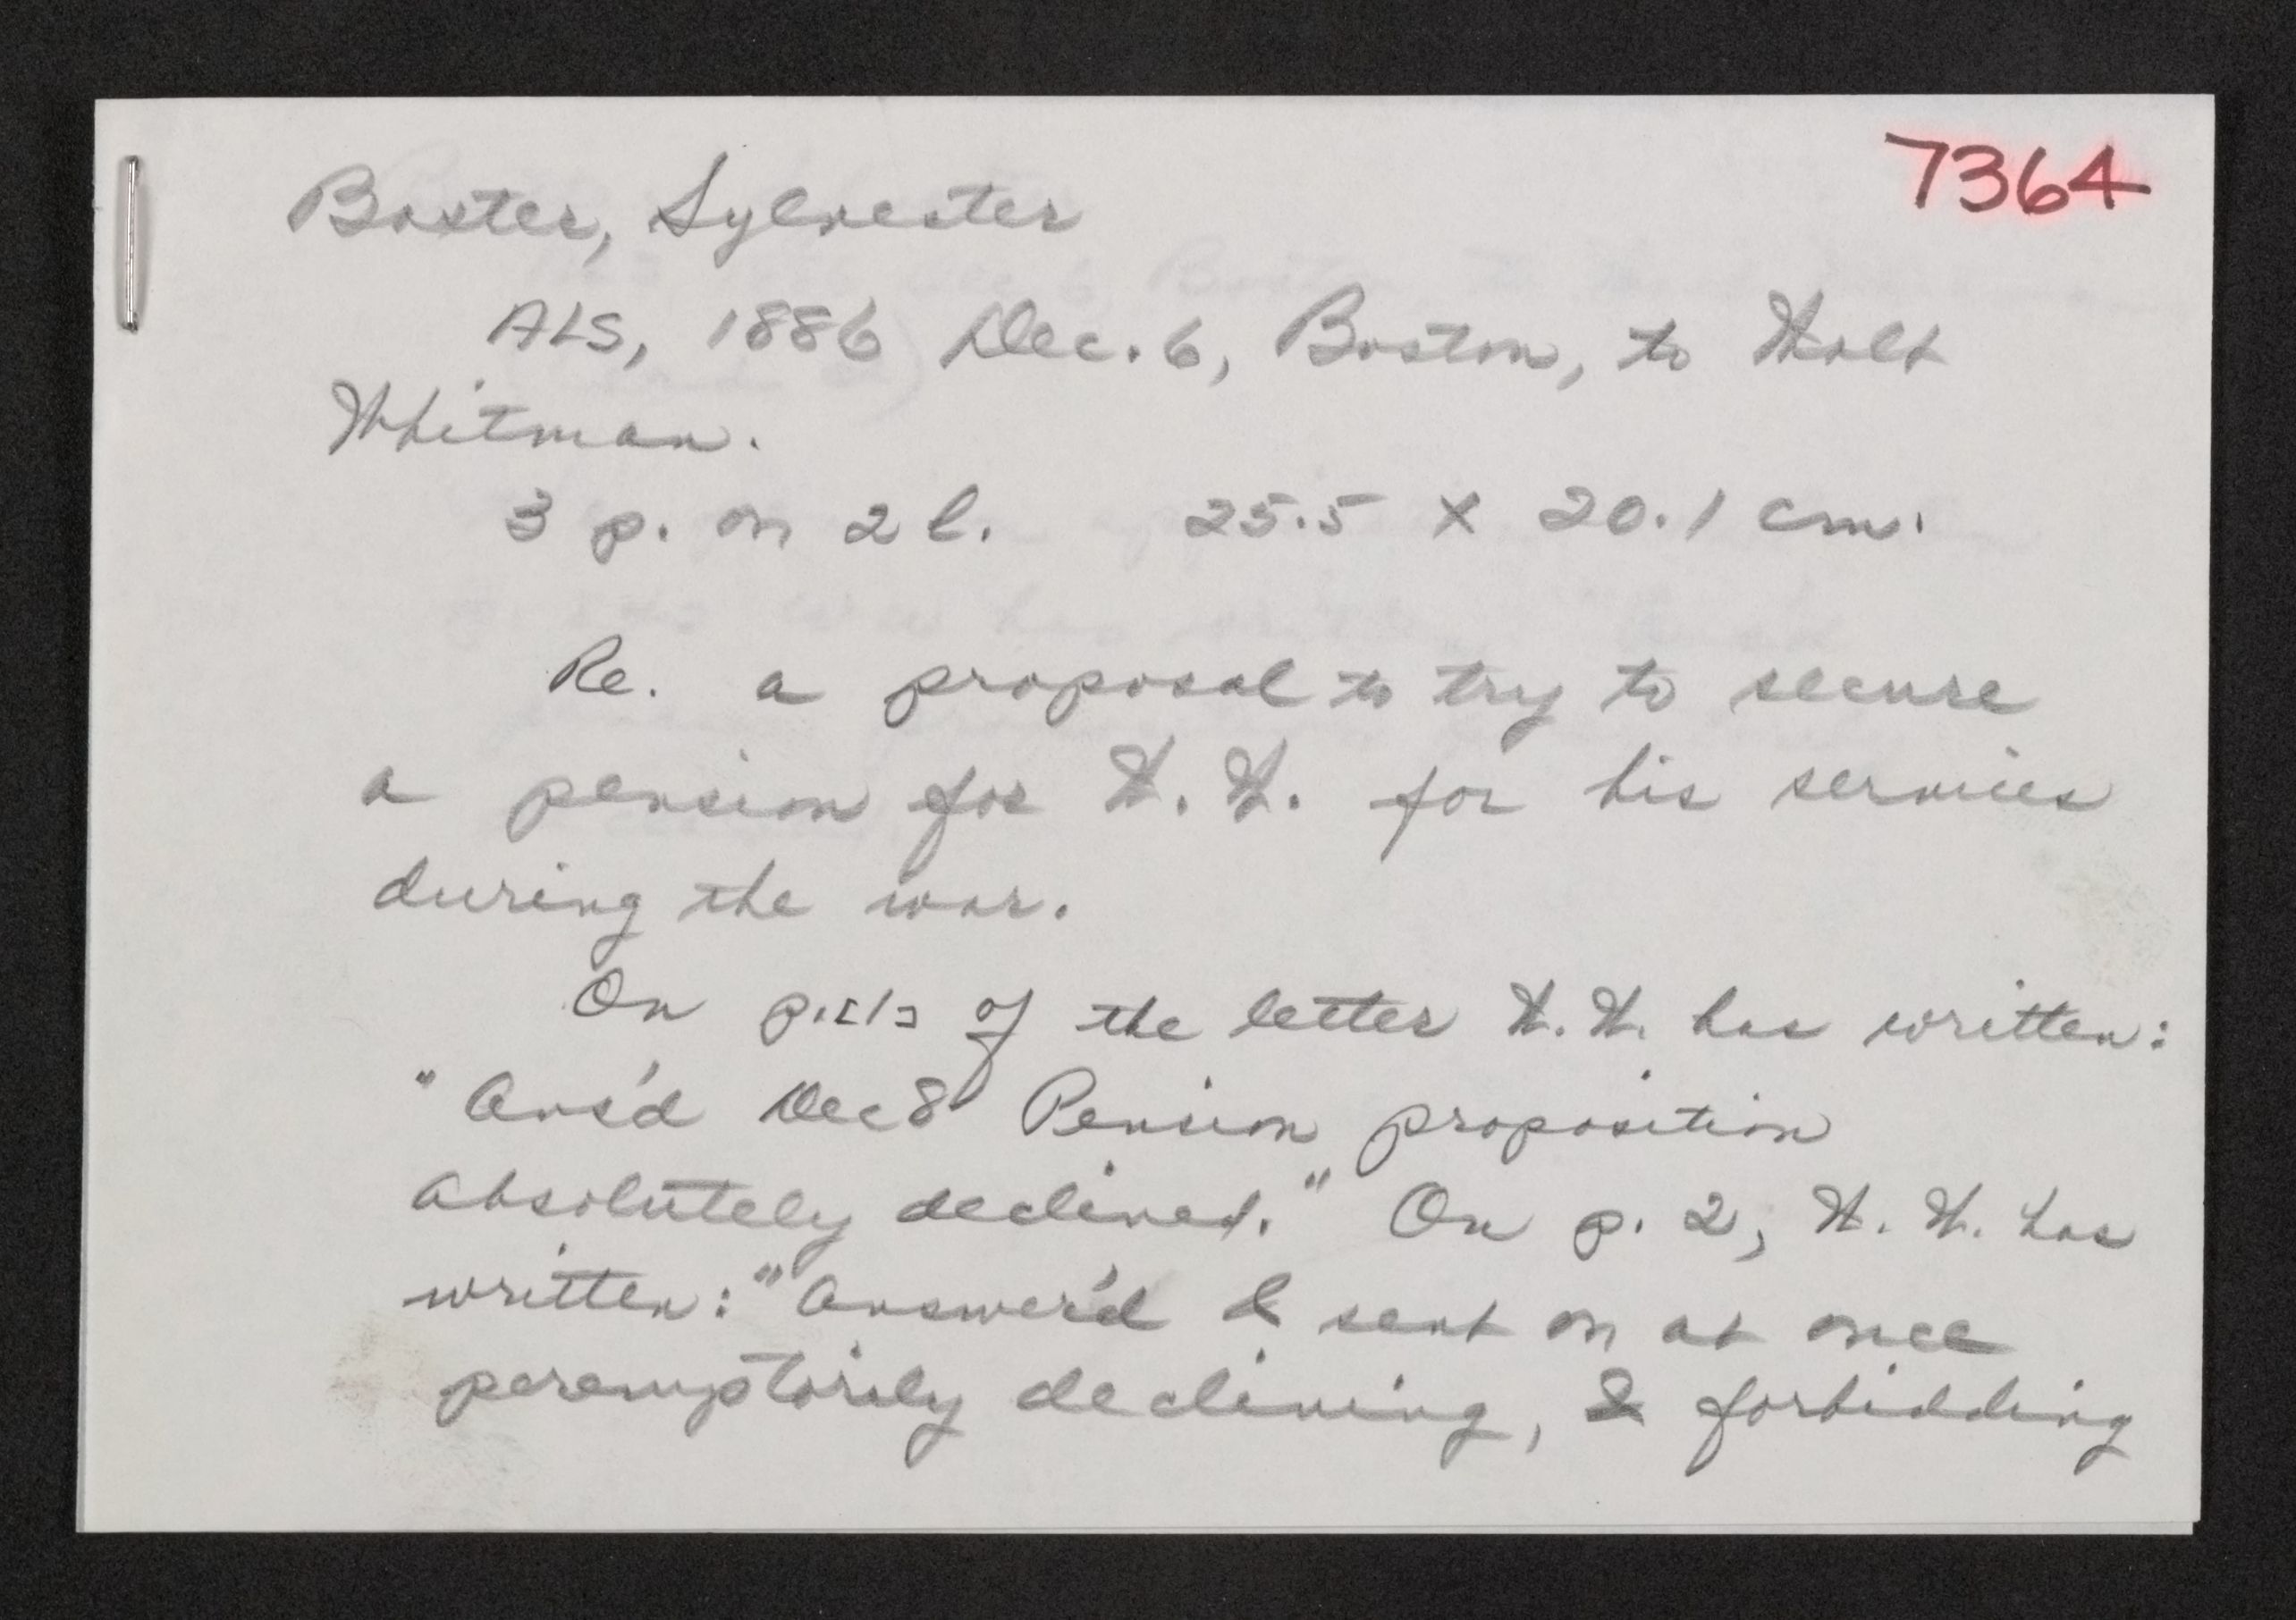 7364
Baxter, Sylvester
ALS, 1886 Dec. 6, Boston, to Walt
Whitman.
3 p. on 2 l. 25.5 x 20.1 cm.
Re. a proposal to try to secure
a pension for W. W. for his services
during the war.
On p.[1] of the letter W. W. has written:
"Ans'd Dec 8 Pension proposition
absolutely declined." On p. 2, W. W. has
written: "Answer'd & sent on at once
peremptorily declining, & forbidding